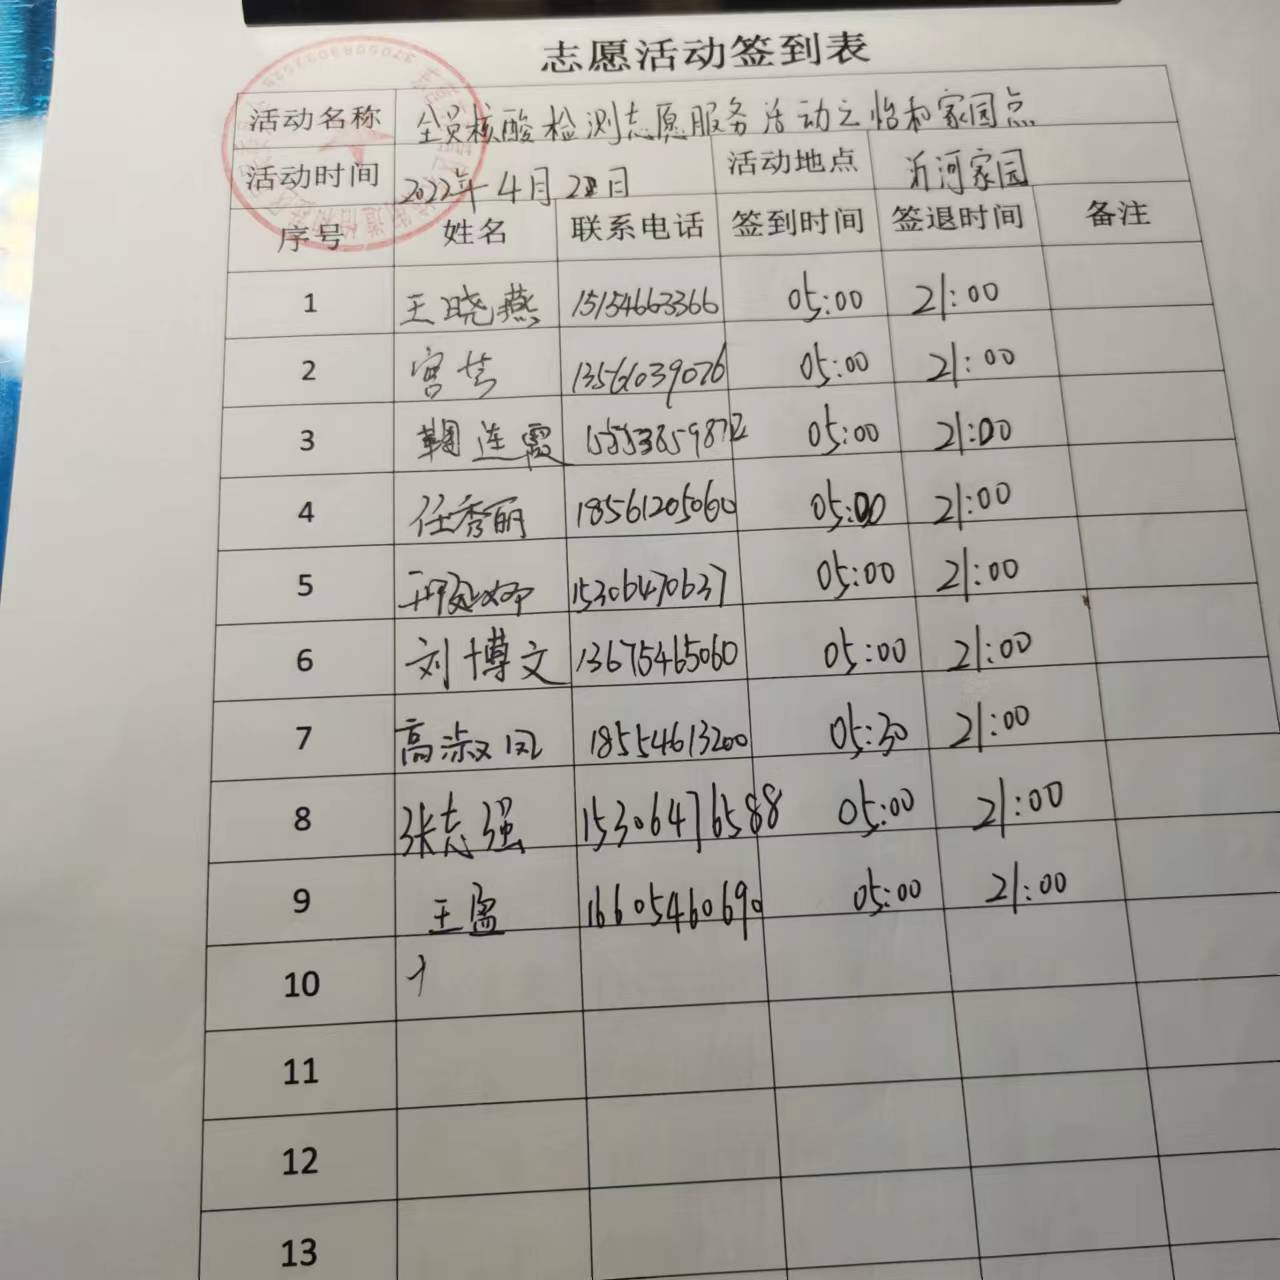 志愿活动签到表
活动名称 全员核酸检测志愿服务活动之怡和家园点
活动时间 2022年4月28日 活动地点 沂河家园
序号 姓名 联系电话 签到时间 签退时间 备注
1 王晓燕 15154663366 05:00 21:00
2 宫芸 13561039076 05:00 21:00
3 鞠连霞 05:00 21:00
4 任秀丽 18561205060 05:00 21:00
5 15306470637 05:00 21:00
6 刘博文 13675465060 05:00 21:00
7 高淑凤 18554613200 05:30 21:00
8 张志强 15306476588 05:00 21:00
9 王盈 16605460690 05:00 21:00
10
11
12
13